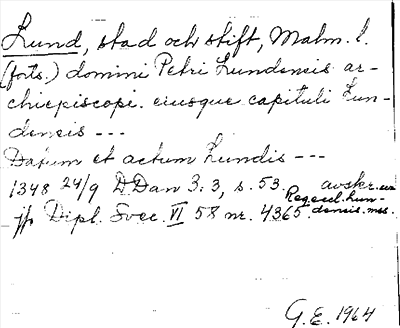 Lund, stad och stift, Malm. l.
(forts.) domini Petri Lundensis ar-
chiepiscopi eiusque capituli Lun-
densis ---
Datum et actum Lundis ---
1348 24/9 DDan 3:3, s. 53. avskr. ur
Regest. Lun-
jfr Dipl. Svec. VI 58 nr. 4365. densis mss.
G.E. 1964